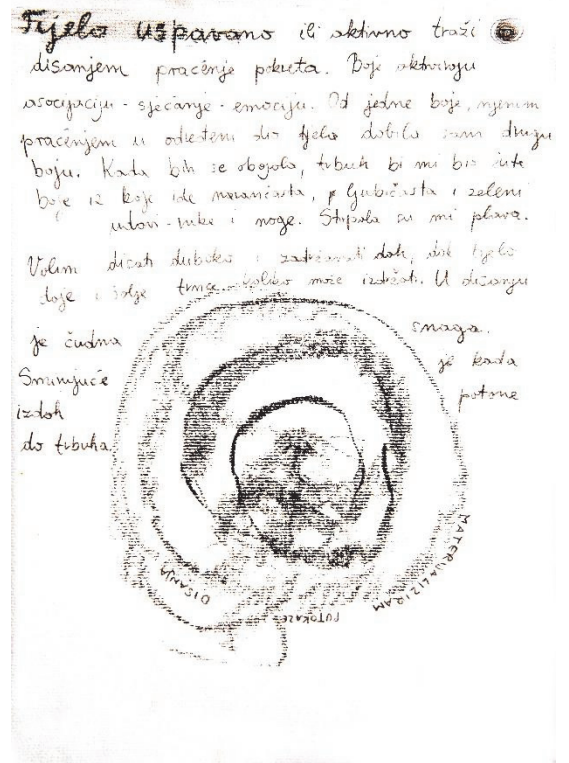 Tijelo uspavano ili aktivno traži
disanjem praćenje pokreta. Boje aktiviraju
asocijaciju - sjećanje - emociju. Od jedne boje, njenim
praćenjem u određeni dio tijela dobila sam drugu
boju. Kada bih se obojala, trbuh bi mi bio žute
boje iz koje ide narančasta, ljubičasta i zeleni
udovi - ruke i noge. Stopala su mi plava.
Volim disati duboko i zadržavati dah, dok tijelo
daje i šalje trnce koliko može izdržati. U disanju
je čudna snaga.
Smirujuće je kada
izdah potone
do trbuha.
DISANJA
PUTOKAZE
MATERIJALIZIRAM